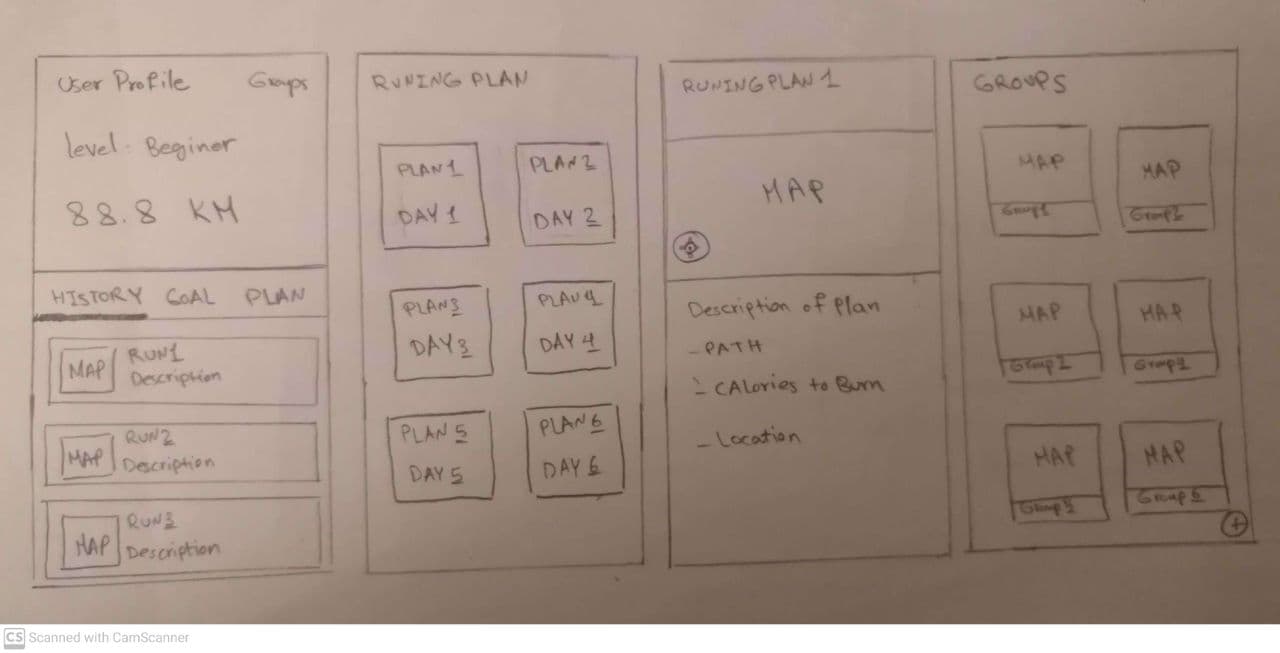 User Profile Groups
level: Beginer
88.8 KM
HISTORY GOAL PLAN
MAP
RUN1
Description
MAP
RUN2
Description
MAP
RUN3
Description
RUNING PLAN
PLAN 1
DAY 1
PLAN 2
DAY 2
PLAN 3
DAY 3
PLAN 4
DAY 4
PLAN 5
DAY 5
PLAN 6
DAY 6
RUNING PLAN 1
MAP
Description of Plan
- PATH
- CALories to Burn
- Location
GROUPS
MAP
Group1
MAP
Group2
MAP
Group
MAP
Group
MAP
Group5
MAP
Group 6
+
CS Scanned with CamScanner